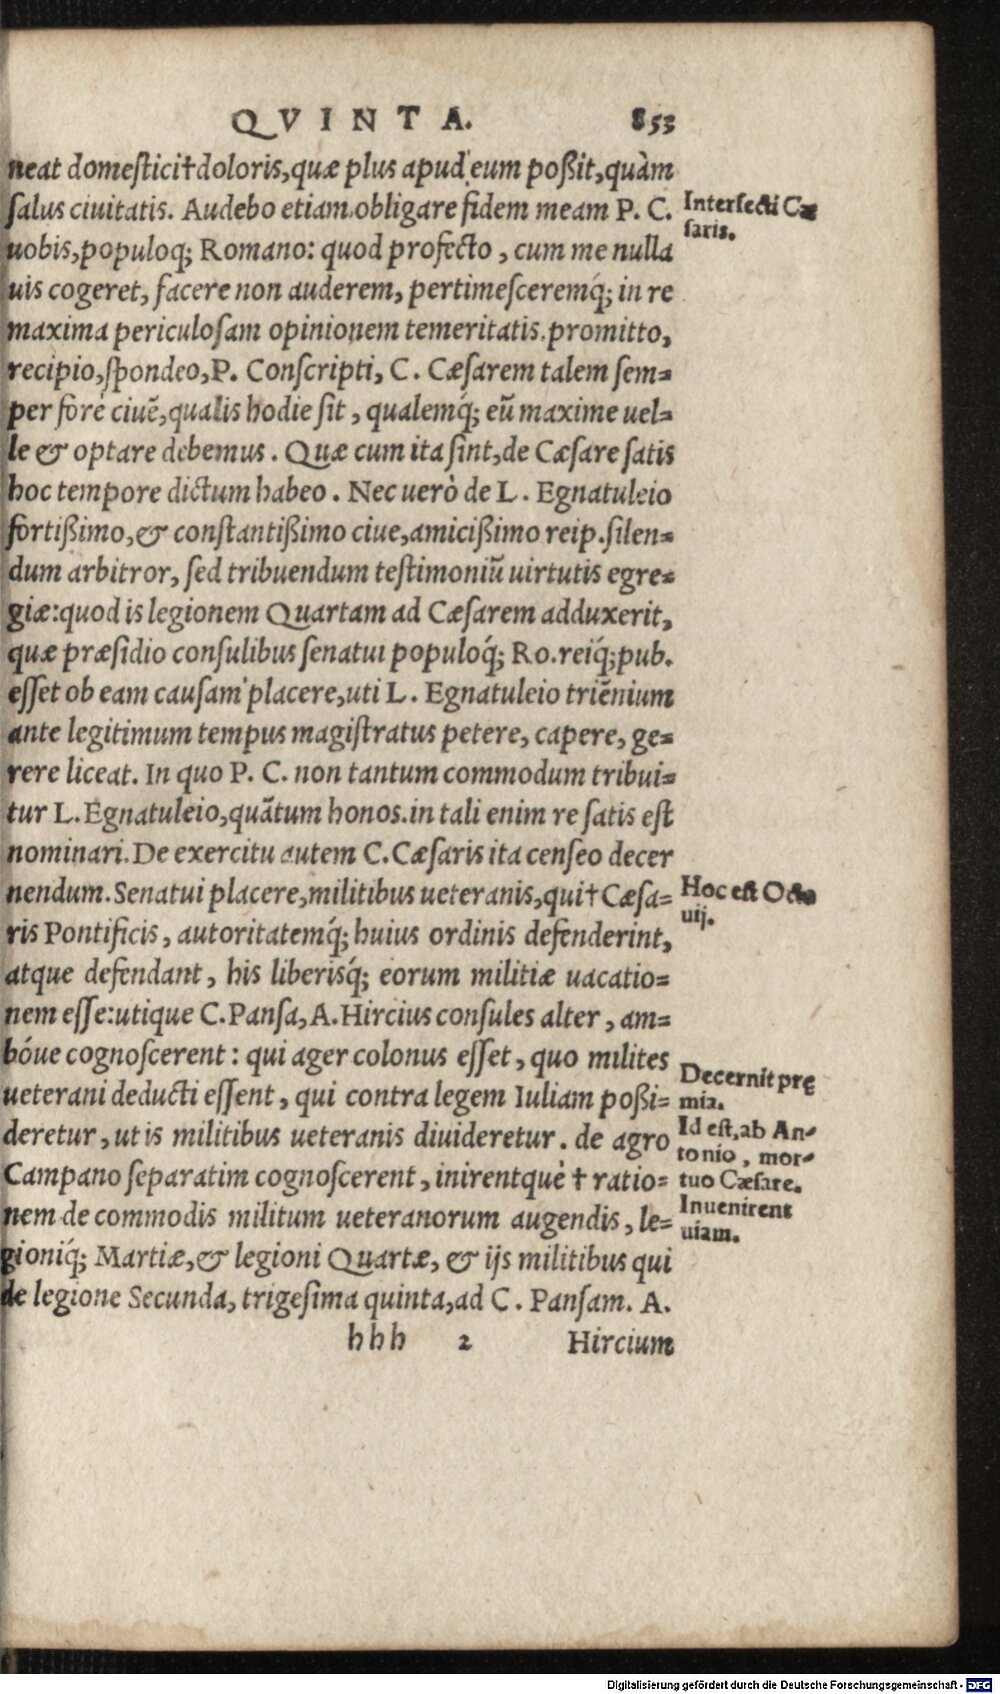 QVINTA. 853
neat domestici†doloris,quæ plus apud eum poßit,quàm
salus ciuitatis. Audebo etiam obligare fidem meam P. C.
uobis,populoq; Romano: quod profecto, cum me nulla
uis cogeret, facere non auderem, pertimesceremq́; in re
maxima periculosam opinionem temeritatis.promitto,
recipio,spondeo,P. Conscripti, C. Cæsarem talem sem=
per forè ciuē,qualis hodie sit, qualemq́; eū maxime uel=
le & optare debemus. Quæ cum ita sint,de Cæsare satis
hoc tempore dictum habeo. Nec uerò de L. Egnatuleio
fortißimo,& constantißimo ciue,amicißimo reip.silen=
dum arbitror, sed tribuendum testimoniū uirtutis egre=
giæ:quod is legionem Quartam ad Cæsarem adduxerit,
quæ præsidio consulibus senatui populoq́; Ro.reiq́;pub.
esset ob eam causam placere,uti L. Egnatuleio triēnium
ante legitimum tempus magistratus petere, capere, ge=
rere liceat. In quo P. C. non tantum commodum tribui=
tur L.Egnatuleio,quātum honos.in tali enim re satis est
nominari.De exercitu autem C.Cæsaris ita censeo decer
nendum.Senatui placere,militibus ueteranis,qui†Cæsa=
ris Pontificis, autoritatemq́; huius ordinis defenderint,
atque defendant, his liberisq́; eorum militiæ uacatio=
nem esse:utique C.Pansa,A.Hircius consules alter, am=
bóue cognoscerent: qui ager colonus esset, quo milites
ueterani deducti essent, qui contra legem Iuliam poßi=
deretur, ut is militibus ueteranis diuideretur. de agro
Campano separatim cognoscerent, inirentquè † ratio=
nem de commodis militum ueteranorum augendis, le=
gioniq́; Martiæ,& legioni Quartæ, & ijs militibus qui
de legione Secunda, trigesima quinta,ad C. Pansam. A.
hhh 2 Hircium
Intersecti Cæ
saris.
Hoc est Octa
uij.
Decernit prę
mia.
Id est,ab An-
tonio, mor-
tuo Cæsare.
Inuenirent
uiam.
Digitalisierung gefördert durch die Deutsche Forschungsgemeinschaft - DFG